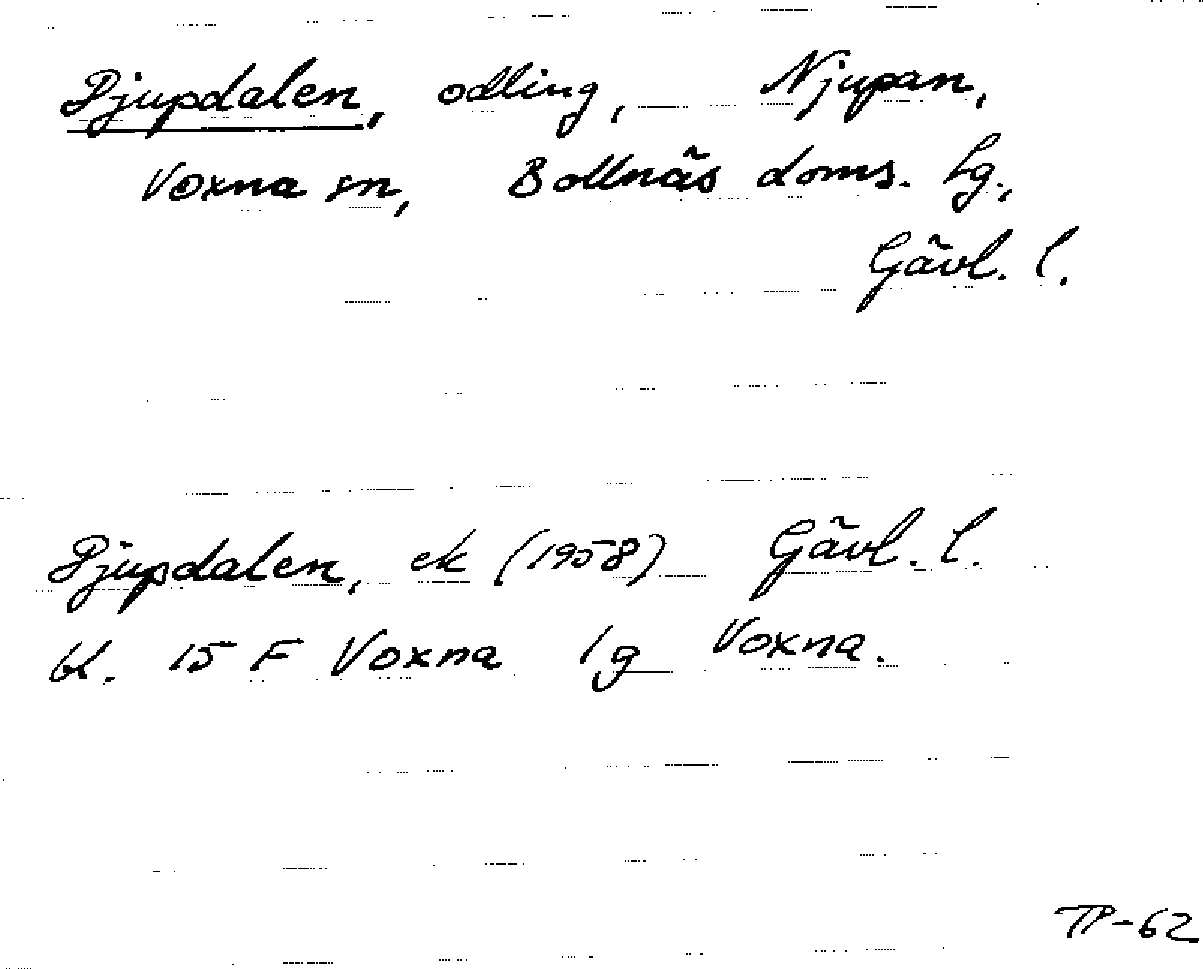 Djupdalen, odling, Njupan,
Voxna sn, Bollnäs doms. lg.,
Gävl. l.
Djupdalen, ek (1958) Gävl. l.
bl. 15 F Voxna lg Voxna.
TP-62